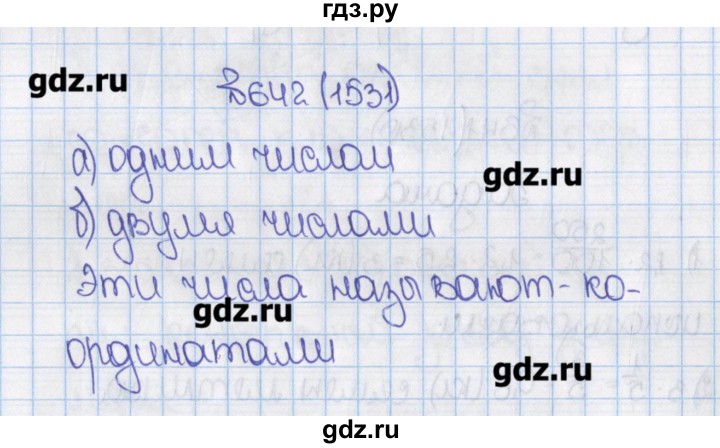 гдз.ру
gdz.ru
№642 (1531)
а) одним числом
gdz.ru
б) двумя числами
Эти числа называют-ко-
gdz.ru
ординатами
gdz.ru
гдз.ру